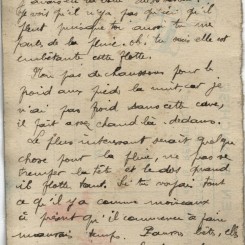 je vois qu'il n'y a pas qu'ici qu'il
pleut puisque toi aussi tu me
parles de la pluie. oh, tu sais elle est
embêtante cette flotte.
Non pas de chaussons pour le
froid aux pieds la nuit, car je
n'ai pas froid dans cette cave,
il fait assez chaud là-dedans.
Le plus intéressant serait quelque
chose pour la pluie, ne pas se
tremper la tête et le dos quand
il flotte tant. Si tu voyais tout
ce qu'il y a comme moineaux
à présent qu'il commence à faire
mauvais temps. Pauvres bêtes, elles